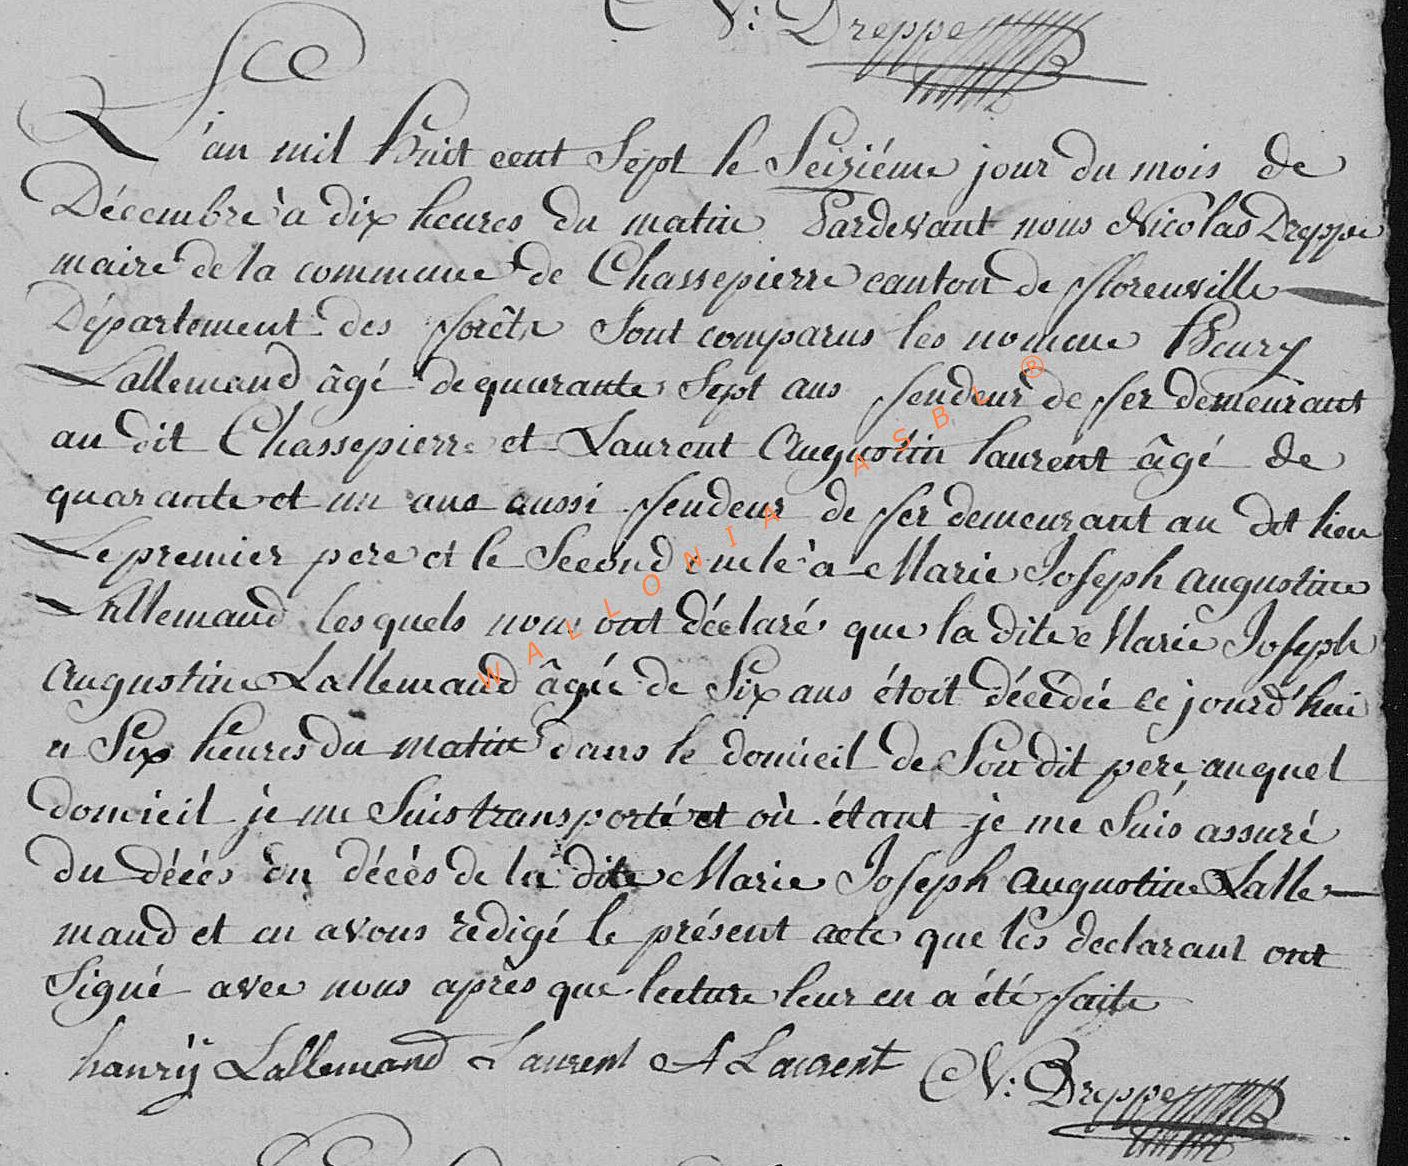 N: Dreppe
L'an mil huit cent Sept le Seiziéme jour du mois de
Décembre à dix heures du matin Pardevant nous Nicolas Dreppe
maire de la commune de Chassepierre canton de florenville
Département des forêts Sont comparus les nomme henry
Lallemand âgé de quarante Sept ans fendeur de fer demeurant
au dit Chassepierre et Laurent Augustin laurent âgé de
quarante et un ans aussi fendeur de fer demeurant au dit lieu
Le premier pere et le Second oncle à Marie Joseph augustine
Lallemand lesquels nous ont déclaré que la dite Marie Joseph
augustine Lallemand âgée de Six ans étoit décédée ce jourd'hui
a Six heures du matin dans le domicil de Son dit pere, auquel
domicil je me Suis transporté et où étant je me Suis assuré
du décés du décès de la dite Marie Joseph augustine Lalle-
mand et en avons redigé le présent acte que les declarant ont
Signé avec nous aprés que lecture leur en a été faite
hanrÿ Lallemand Laurent A Laurent N: Dreppe
WALLONIA ASBL ®